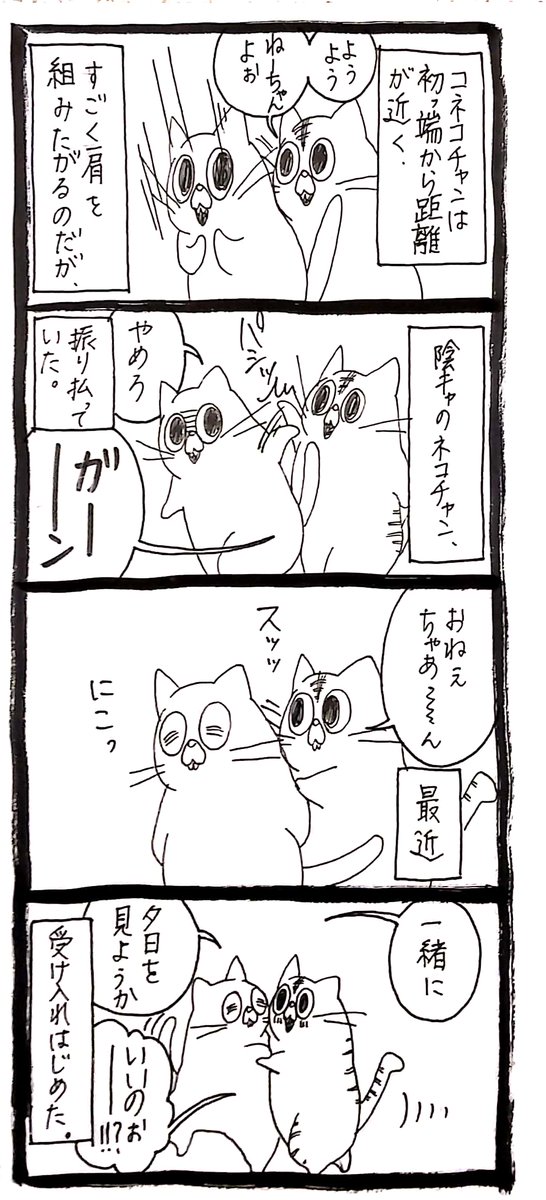 コネコチャンは
初っ端から距離
が近く、
よう
よう
ねーちゃん
よぉ
すごく肩を
組みたがるのだが、
陰キャのネコチャン、
パシッ
やめろ
振り払って
いた。
ガーーン
おねぇ
ちゃあ~~ん
スッッ
にこっ
最近
一緒に
夕日を
見ようか
いいのぉ
ーー!!?
受け入れはじめた。